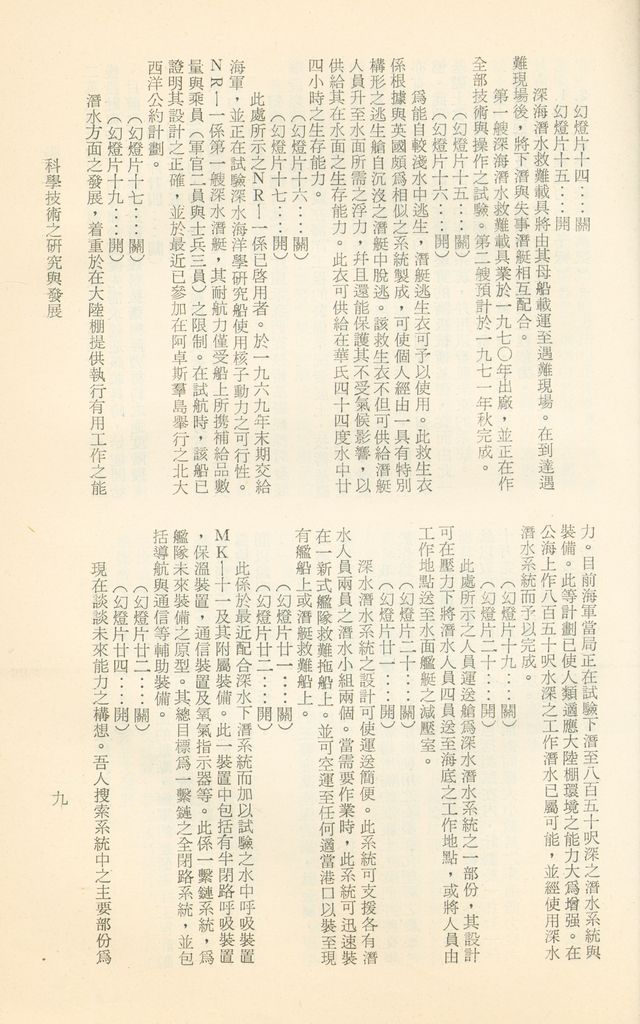 幻燈片十四‥‥關
幻燈片十五‥‥開
深海潛水救難載具將由其母船載運至遇難現場。在到達遇
難現場後，將下潛與失事潛艇相互配合。
第一艘深海潛水救難載具業於一九七〇年出廠，並正在作
全部技術與操作之試驗。第二艘預計於一九七一年秋完成。
（幻燈片十五‥‥關）
（幻燈片十六‥‥開）
爲能自較淺水中逃生，潛艇逃生衣可予以使用。此救生衣
係根據與英國頗爲相似之系統製成，可使個人經由一具有特別
構形之逃生艙自沉沒之潛艇中脫逃。該救生衣不但可供給潛艇
人員升至水面所需之浮力，幷且還能保護其不受氣候影響，以
供給其在水面之生存能力。此衣可供給在華氏四十四度水中廿
四小時之生存能力。
（幻燈片十六‥‥關）
（幻燈片十七‥‥開）
此處所示之NR—一係已啓用者。於一九六九年末期交給
海軍，並正在試驗深水海洋學研究船使用核子動力之可行性。
NR—一係第一艘深水潛艇，其耐航力僅受船上所携補給品數
量與乘員（軍官二員與士兵三員）之限制。在試航時，該船已
證明其設計之正確，並於最近已參加在阿卓斯羣島舉行之北大
西洋公約計劃。
（幻燈片十七‥‥關）
（幻燈片十九‥‥開）
潛水方面之發展，着重於在大陸棚提供執行有用工作之能
科學技術之研究與發展
力。目前海軍當局正在試驗下潛至八百五十呎深之潛水系統與
裝備。此等計劃已使人類適應大陸棚環境之能力大爲增强。在
公海上作八百五十呎水深之工作潛水已屬可能，並經使用深水
潛水系統而予以完成。
（幻燈片十九‥‥關）
（幻燈片二十‥‥開）
此處所示之人員運送艙爲深水潛水系統之一部份，其設計
可在壓力下將潛水人員四員送至海底之工作地點，或將人員由
工作地點送至水面艦艇之減壓室。
（幻燈片二十‥‥關）
（幻燈片廿一‥‥開）
深水潛水系統之設計可使運送簡便。此系統可支援各有潛
水人員兩員之潛水小組兩個。當需要作業時，此系統可迅速裝
在一新式艦隊救難拖船上。並可空運至任何適當港口以裝至現
有艦船上或潛艇救難船上。
（幻燈片廿一‥‥關）
（幻燈片廿二‥‥開）
此係於最近配合深水下潛系統而加以試驗之水中呼吸裝置
MK—十一及其附屬裝備。此一裝置中包括有半閉路呼吸裝置
，保溫裝置，通信裝置及氧氣指示器等。此係一繫鏈系統，爲
艦隊未來裝備之原型。其總目標爲一繫鏈之全閉路系統，並包
括導航與通信等輔助裝備。
（幻燈片廿二‥‥關）
（幻燈片廿四‥‥開）
現在談談未來能力之構想。吾人搜索系統中之主要部份爲
九